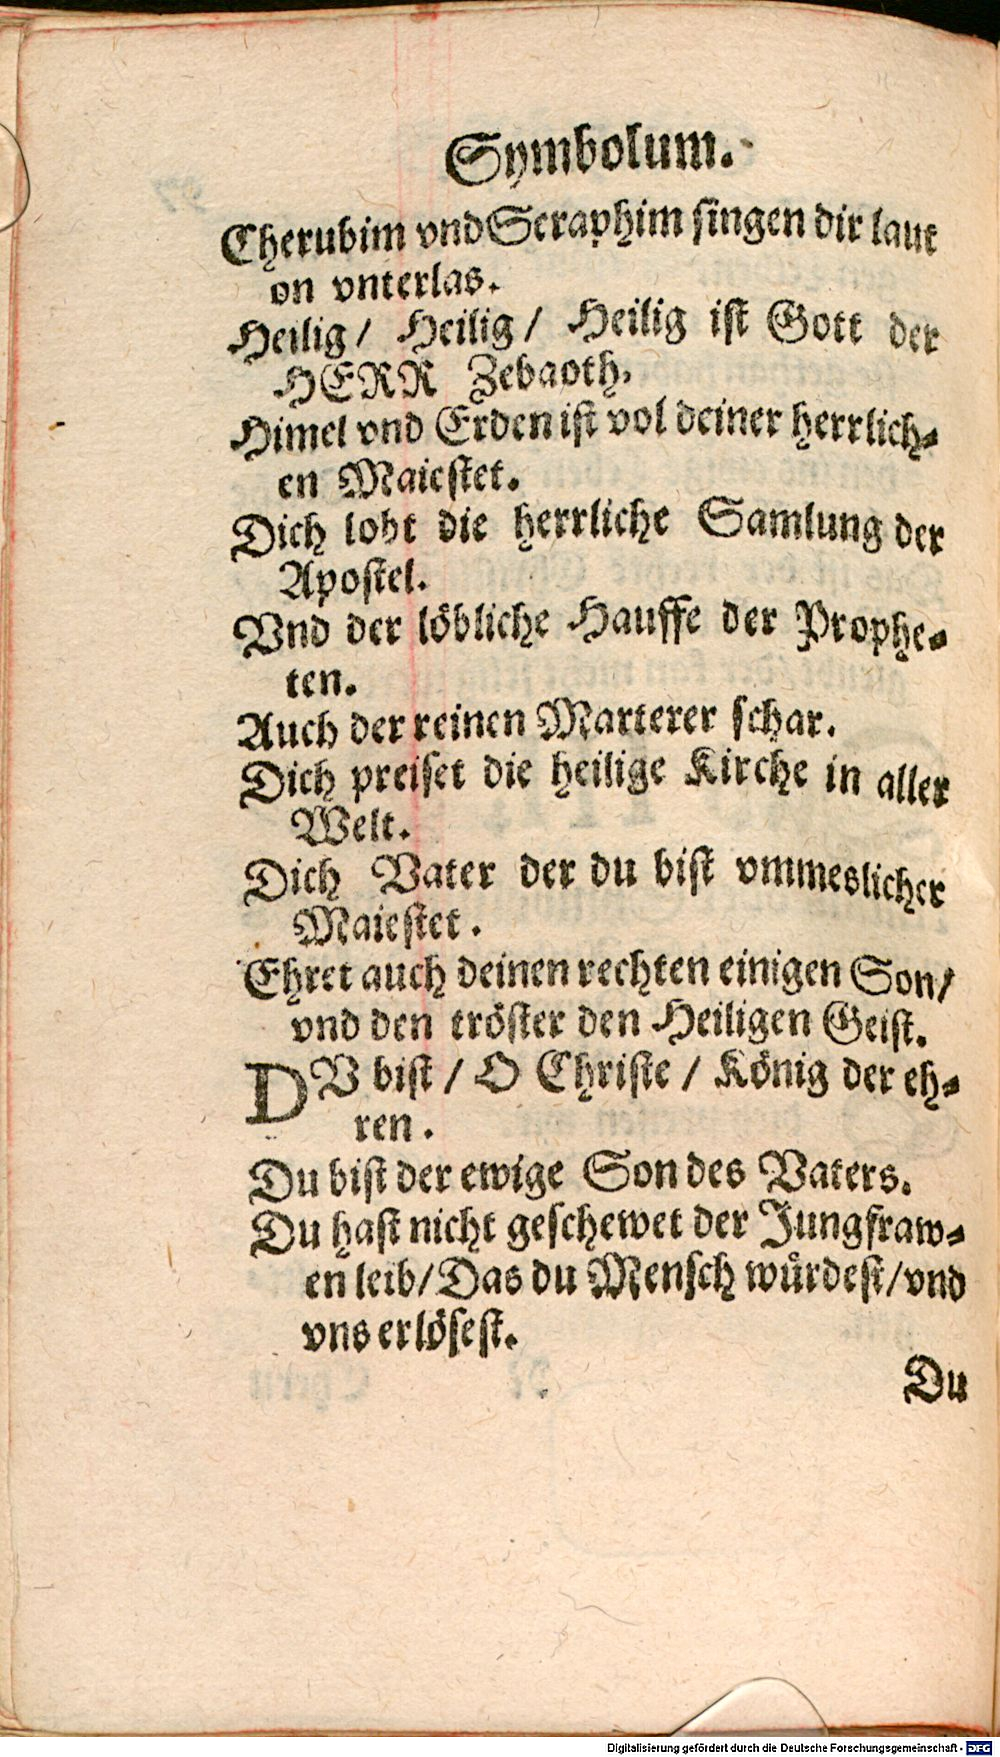 Symbolum.
Cherubim vnd Seraphim singen dir laut
on vnterlas.
Heilig/ Heilig/ Heilig ist Gott der
HERR Zebaoth.
Himel vnd Erden ist vol deiner herrlich=
en Maiestet.
Dich lobt die herrliche Samlung der
Apostel.
Vnd der löbliche Hauffe der Prophe=
ten.
Auch der reinen Marterer schar.
Dich preiset die heilige Kirche in aller
Welt.
Dich Vater der du bist vmmeslicher
Maiestet.
Ehret auch deinen rechten einigen Son/
vnd den tröster den Heiligen Geist.
DV bist / O Christe / König der eh=
ren.
Du bist der ewige Son des Vaters.
Du hast nicht geschewet der Jungfraw=
en leib/Das du Mensch würdest/vnd
vns erlösest.
Du
Digitalisierung gefördert durch die Deutsche Forschungsgemeinschaft - DFG